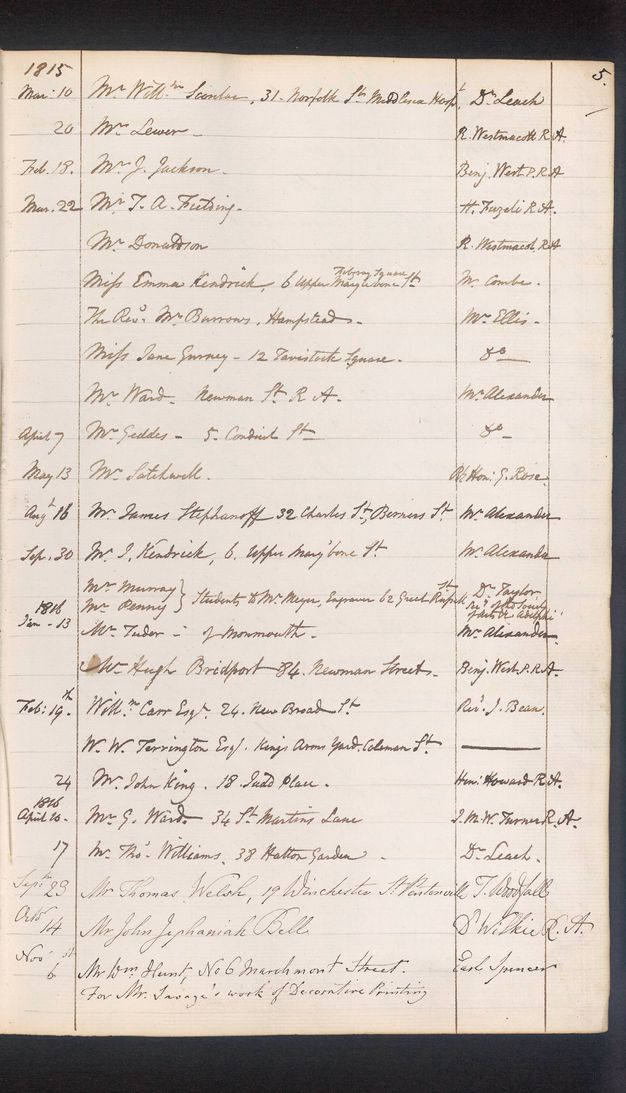 1815
5.
Mar: 10 Mr. Willm. 31 Norfolk St. Middlesex Hospl. Dr. Leach
20 Mr. Lewer - R. Westmacott R.A.
Feb. 18. Mr. J. Jackson - Benj. West. P.R.A
Mar. 22 Mr. T. A. Fielding - H. Fuzeli R.A.
Mr. Donaldson R. Westmacott, R.A
Fitzroy Square
Miss Emma Kendrick, 6 Upper Marylebone St. Mr. Combe.
The Revd. Mr. Burrows, Hampstead. Mr. Ellis -
Miss Jane Gurney - 12 Tavistock Square. Do
Mr. Ward - Newman St. R.A. Mr. Alexander
April 7 Mr. Geddes - 5. Conduit St. Do
May 13 Mr. Satchwell. Rt. Hon: G. Rose
Augt. 16 Mr. James Stephanoff 32 Charles St., Berners St. Mr. Alexander
Sep. 30 Mr. J. Kendrick, 6. Upper Mary'bone St. Mr. Alexander
Mr. Murray } Students to Mr. Meyer, Engraver 62 Great Russell St. Dr. Taylor
Mr. Penny } Secy. of the Society of Arts &c Adelphi
1816
Jan - 13 Mr. Tudor - of Monmouth. Mr. Alexander
Mr. Hugh Bridport 84. Newman Street. Benj. West. P.R.A.
Feb: 19th. Willm. Carr Esqr. 24. New Broad St. Revd. J. Bean.
W. W. Torrington Esq. Kings Arms Yard. Coleman St.
24 Mr. John King. 18. Judd Place. Hen: Howard R.A.
1816
April 10. Mr. G. Ward. 34 St. Martins Lane J.M.W. Turner R.A.
17 Mr. Thos. Williams, 38 Hatton Garden. Dr. Leach.
Sept. 23 Mr Thomas Welsh, 19 Winchester St. Pentonville T. Woodfall
Octr 14 Mr John Zephaniah Bell D Wilkie R.A.
Novr 6 Mr Wm. Hunt, No 6 Marchmont Street. Earl Spencer
For Mr. Savage's work of Decorative Printing